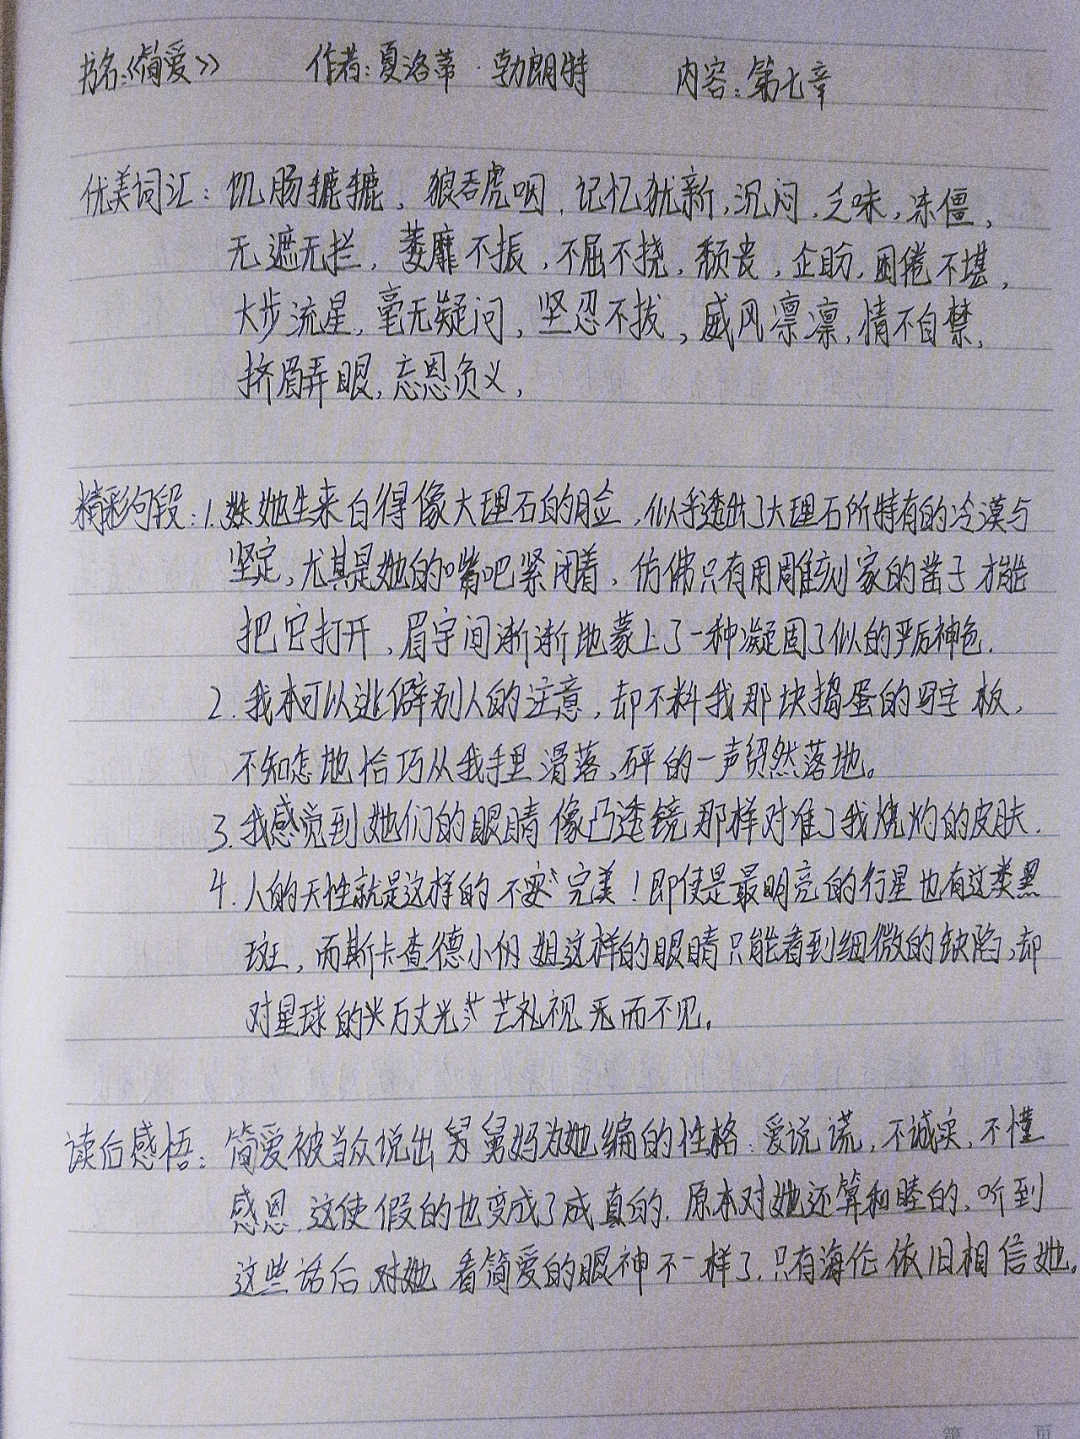 书名:《简爱》 作者:夏洛蒂·勃朗特 内容:第七章
优美词汇:饥肠辘辘、狼吞虎咽、记忆犹新,沉闷,乏味,冻僵,
无遮无拦,萎靡不振,不屈不挠,颓丧,企盼,困倦不堪,
大步流星,毫无疑问,坚忍不拔,威风凛凛,情不自禁,
挤眉弄眼,忘恩负义,
精彩句段:1.她生来白得像大理石的脸,似乎透出了大理石所特有的冷漠与
坚定,尤其是她的嘴吧紧闭着,仿佛只有用雕刻家的凿子才能
把它打开,眉宇间渐渐地蒙上了一种凝固了似的严厉神色.
2.我本可以逃僻别人的注意,却不料我那块捣蛋的写字板,
不知怎地恰巧从我手里滑落,砰的一声贸然落地。
3.我感觉到她们的眼睛像凸透镜那样对准了我烧灼的皮肤.
4.人的天性就是这样的不完美!即使是最明亮的行星也有这类黑
斑,而斯卡查德小姐这样的眼睛只能看到细微的缺陷,却
对星球的万丈光芒视而不见。
读后感悟:简爱被当众说出舅妈为她编的性格:爱说谎,不诚实,不懂
感恩.这使假的也变成了成真的.原本对她还算和睦的,听到
这些话后对她看简爱的眼神不一样了.只有海伦依旧相信她。